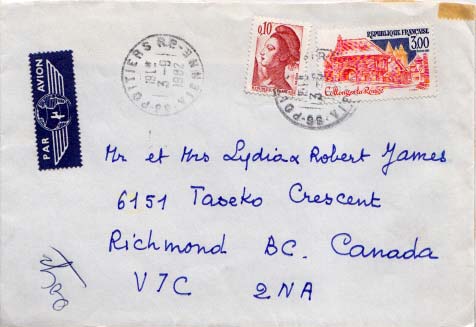 PAR AVION
POITIERS R.P. VIENNE
3-9
1982
0,10
RÉPUBLIQUE FRANÇAISE
3,00
Collonges-la-Rouge
Mr et Mrs Lydia & Robert James
6151 Taseko Crescent
Richmond BC. Canada
V7C 2NA